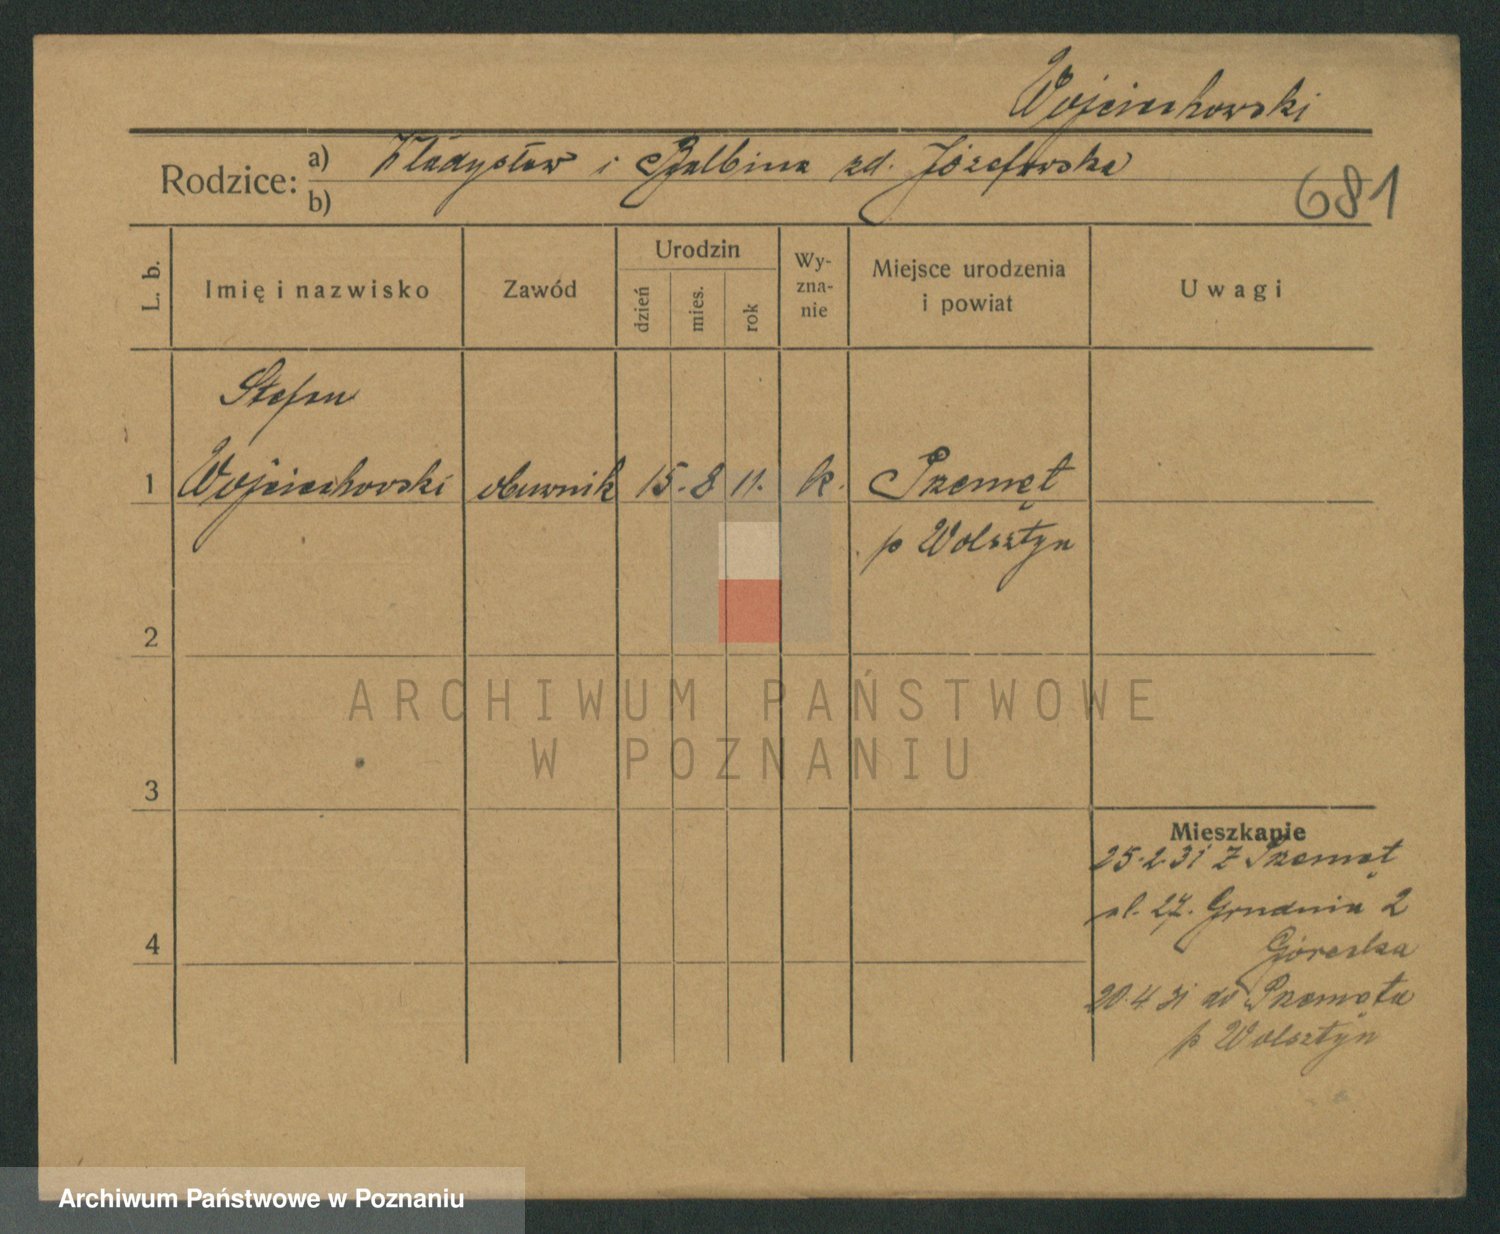 Wojciechowski
Rodzice: a) Władysław i Balbina zd. Józefowska
b)
681
L. b.
Imię i nazwisko
Zawód
Urodzin
dzień
mies.
rok
Wy-
zna-
nie
Miejsce urodzenia
i powiat
Uwagi
Stefan
1 Wojciechowski obuwnik 15. 8 11. k. Przemęt
p Wolsztyn
2
3
4
Mieszkanie
25.2.31 z Przemęt
ul. 27. Grudnia 2
20.4.31 do Przemęta
p Wolsztyn
ARCHIWUM PAŃSTWOWE
W POZNANIU
Archiwum Państwowe w Poznaniu